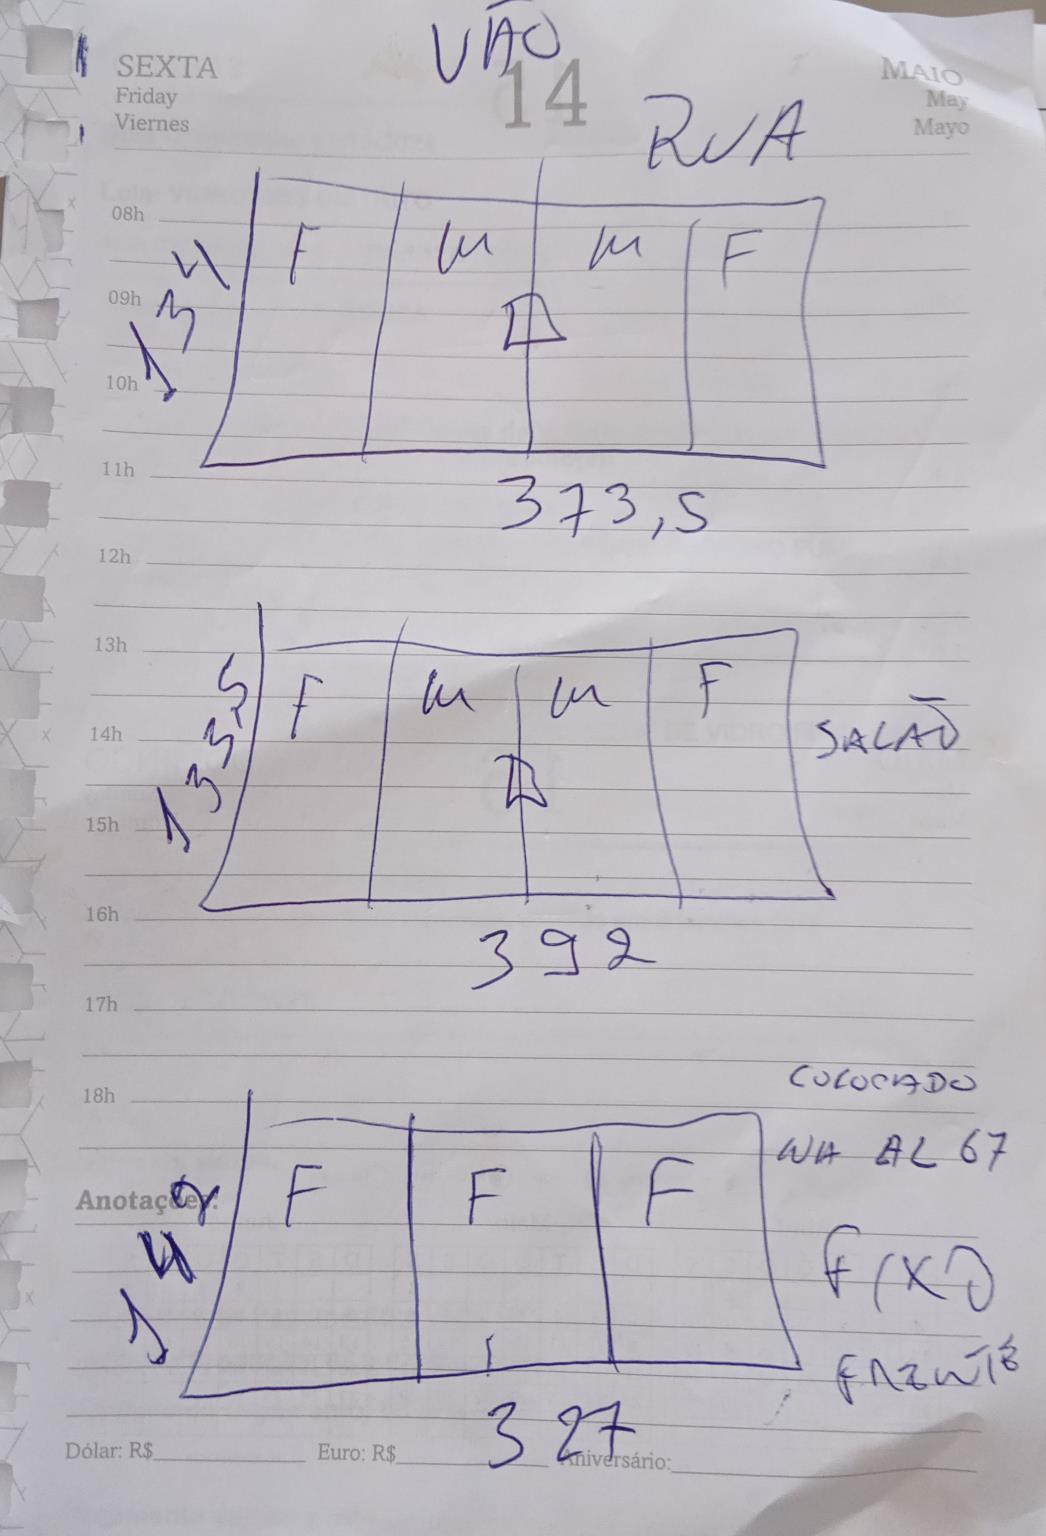 VÃO
SEXTA
Friday
Viernes
14
MAIO
May
Mayo
RUA
08h
F M M F
134
09h
10h
11h
373,5
12h
13h
F M M F
133,5
SALÃO
14h
15h
16h
392
17h
18h
COLOCADO
NA AL 67
F F F
Anotações:
142
FIXO
FRENTE
327
Dólar: R$
Euro: R$
Aniversário: